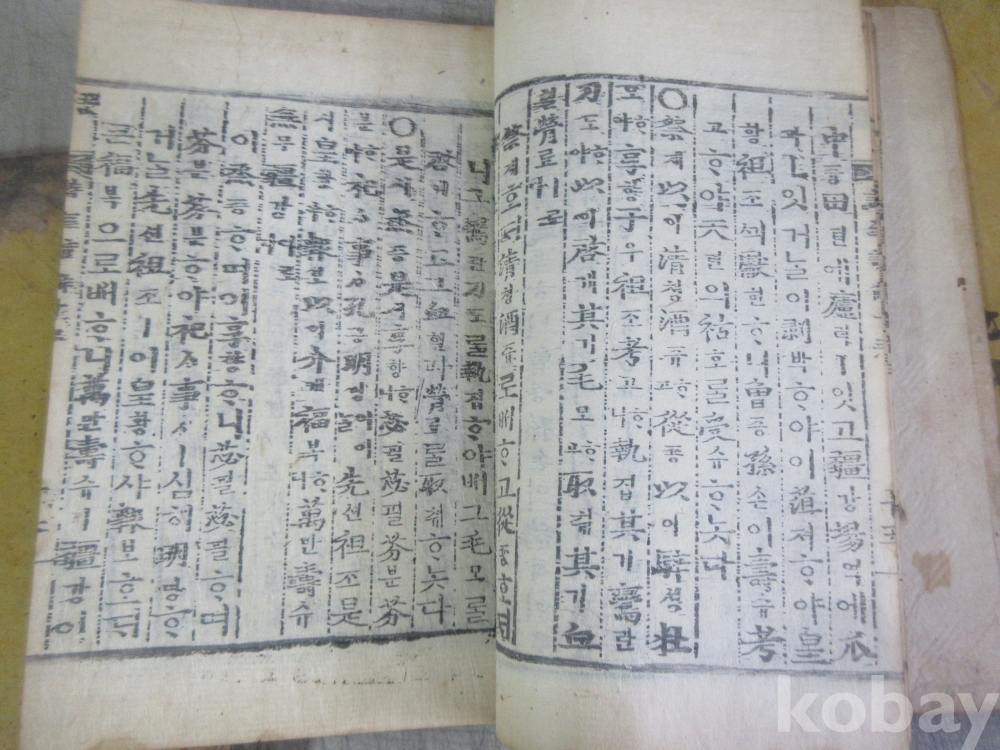 中듕田뎐애廬려ㅣ잇고疆강埸역에瓜
과ㅣ잇거늘이剝박ᄒᆞ야이菹저ᄒᆞ야皇
황祖조ᄭᅴ獻헌ᄒᆞ니曾증孫손이壽슈考
고ᄒᆞ야天텬의祜호ᄅᆞᆯ受슈ᄒᆞ놋다
○祭졔以이淸쳥酒쥬ᄒᆞ고從죵以이騂셩牡
모ᄒᆞ야享향于우祖조考고ᄒᆞ니執집其기鸞란
刀도ᄒᆞ야以이啓계其기毛모ᄒᆞ고取츄其기血
혈膋료ㅣ로다
祭졔호ᄃᆡ淸쳥酒쥬로ᄡᅥᄒᆞ고從죵호ᄃᆡ
니그鸞란刀도ᄅᆞᆯ執집ᄒᆞ야ᄡᅥ그毛모ᄅᆞᆯ
啓계ᄒᆞ고그血혈이며膋료ᄅᆞᆯ取츄ᄒᆞ놋다
○是시烝증是시享향ᄒᆞ니苾필苾필芬분芬
분ᄒᆞ야祀ᄉᆞ事ᄉᆞ孔공明명이어늘先션祖조是
시皇황ᄒᆞ샤報보以이介개福복ᄒᆞ니萬만壽슈
無무疆강이로다
이烝증ᄒᆞ며이享향ᄒᆞ니苾필苾필ᄒᆞ며
芬분芬분ᄒᆞ야祀ᄉᆞ事ᄉᆞㅣ심히明명ᄒᆞ
거늘先션祖조ㅣ이皇황ᄒᆞ샤報보호ᄃᆡ
큰福복으로ᄡᅥᄒᆞ니萬만壽슈ㅣ疆강이
kobay